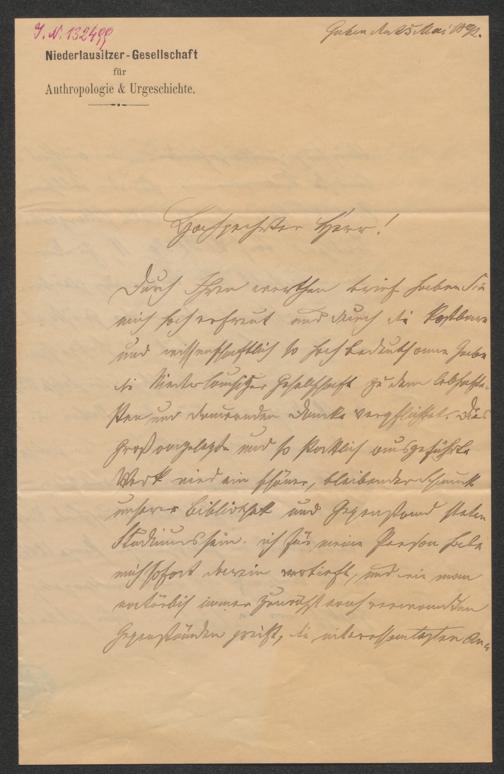 J. N. 132499
Guben den 25 Mai 1892.
Niederlausitzer-Gesellschaft
für
Anthropologie & Urgeschichte.
Hochgeehrter Herr!
Durch Ihren werthen Brief haben Sie
mich hoch erfreut und durch die kostbare
und wissenschaftlich so hoch bedeutsame Gabe
die Niederlausitzer Gesellschaft zu dem lebhafte-
sten und dauernden Danke verpflichtet. Das
groß angelegte und so stattlich ausgeführte
Werk wird ein schöner, bleibender Schmuck
unserer Bibliothek und Gegenstand steten
Studiums sein. Ich für meine Person habe
mich sofort darein vertieft, und wie man
natürlich immer zunächst nach verwandten
Gegenständen greift, die interessantesten An-